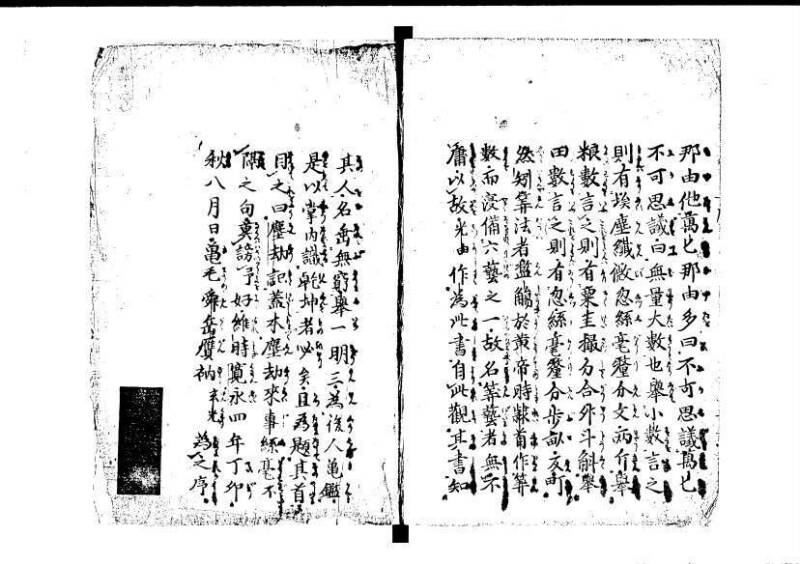 那由他萬〻那由多曰不可思議萬〻
不可思議曰無量大數也舉小數言之
則有埃塵纖微忽絲毫釐分文両斤舉
粮數言之則有粟圭撮勺合升斗斛舉
田數言之則有忽絲毫釐分步畝反町
然矧算法者濫觴於黄帝時隸首作算
數而浸備六藝之一故名算藝者無不
庸以故光由作為此書自此觀其書知
其人名垂無窮舉一明三為後人亀鑑
是以掌内識乾坤者必矣且為題其首
目之曰塵劫記蓋本塵劫來事絲毫不
隔之句莫謗予好維時寛永四年丁卯
秋八月日亀毛舜岳贋衲玄光為之序